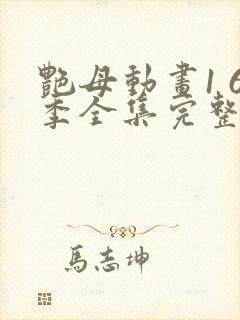 艷母動畫1 6
季全集完整
馬志坤